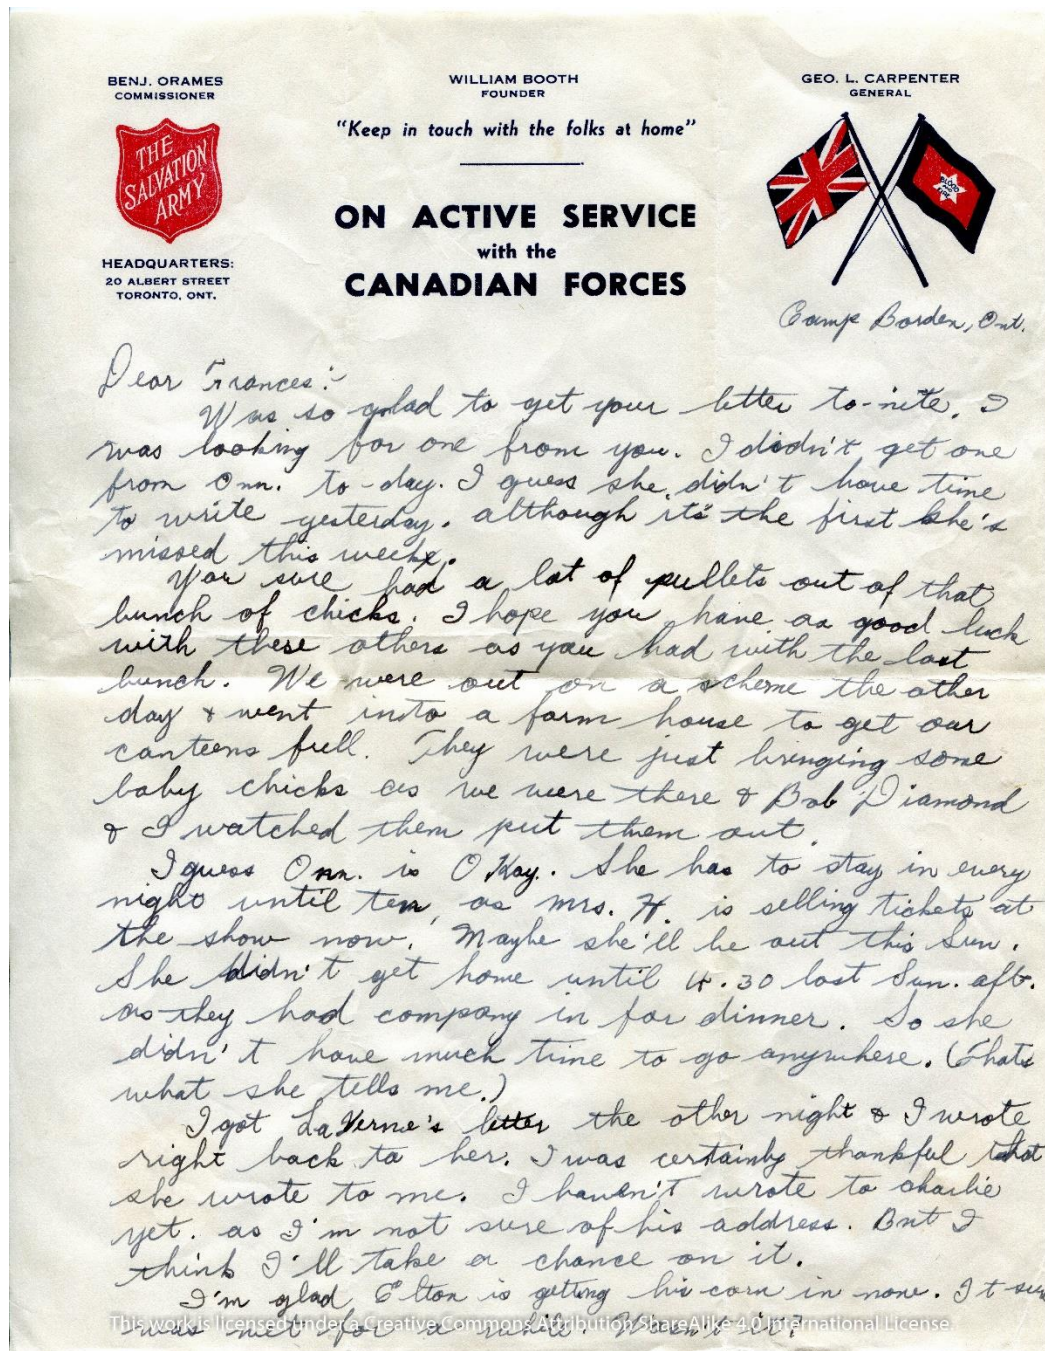 BENJ. ORAMES
COMMISSIONER
THE
SALVATION
ARMY
HEADQUARTERS:
20 ALBERT STREET
TORONTO, ONT.
WILLIAM BOOTH
FOUNDER
"Keep in touch with the folks at home"
ON ACTIVE SERVICE
with the
CANADIAN FORCES
GEO. L. CARPENTER
GENERAL
BLOOD
AND
FIRE
Camp Borden, Ont.
Dear Frances:-
Was so glad to get your letter to-nite. I
was looking for one from you. I didn't get one
from Onn. to-day. I guess she didn't have time
to write yesterday. although it's the first she's
missed this week.
You sure had a lot of pullets out of that
bunch of chicks. I hope you have as good luck
with these others as you had with the last
bunch. We were out on a scheme the other
day & went into a farm house to get our
canteens full. They were just bringing some
baby chicks as we were there & Bob Diamond
& I watched them put them out.
I guess Onn. is O Kay. She has to stay in every
night until ten, as Mrs. H. is selling tickets at
the show now. Maybe she'll be out this Sun.
She didn't get home until 4.30 last Sun. aft.
as they had company in for dinner. So she
didn't have much time to go anywhere. (Thats
what she tells me.)
I got LaVerne's letter the other night & I wrote
right back to her. I was certainly thankful that
she wrote to me. I haven't wrote to Charlie
yet. as I'm not sure of his address. But I
think I'll take a chance on it.
I'm glad Elton is getting his corn in now. It sure
was wet for a while. Wasn't it?
This work is licensed under a Creative Commons Attribution ShareAlike 4.0 International License.